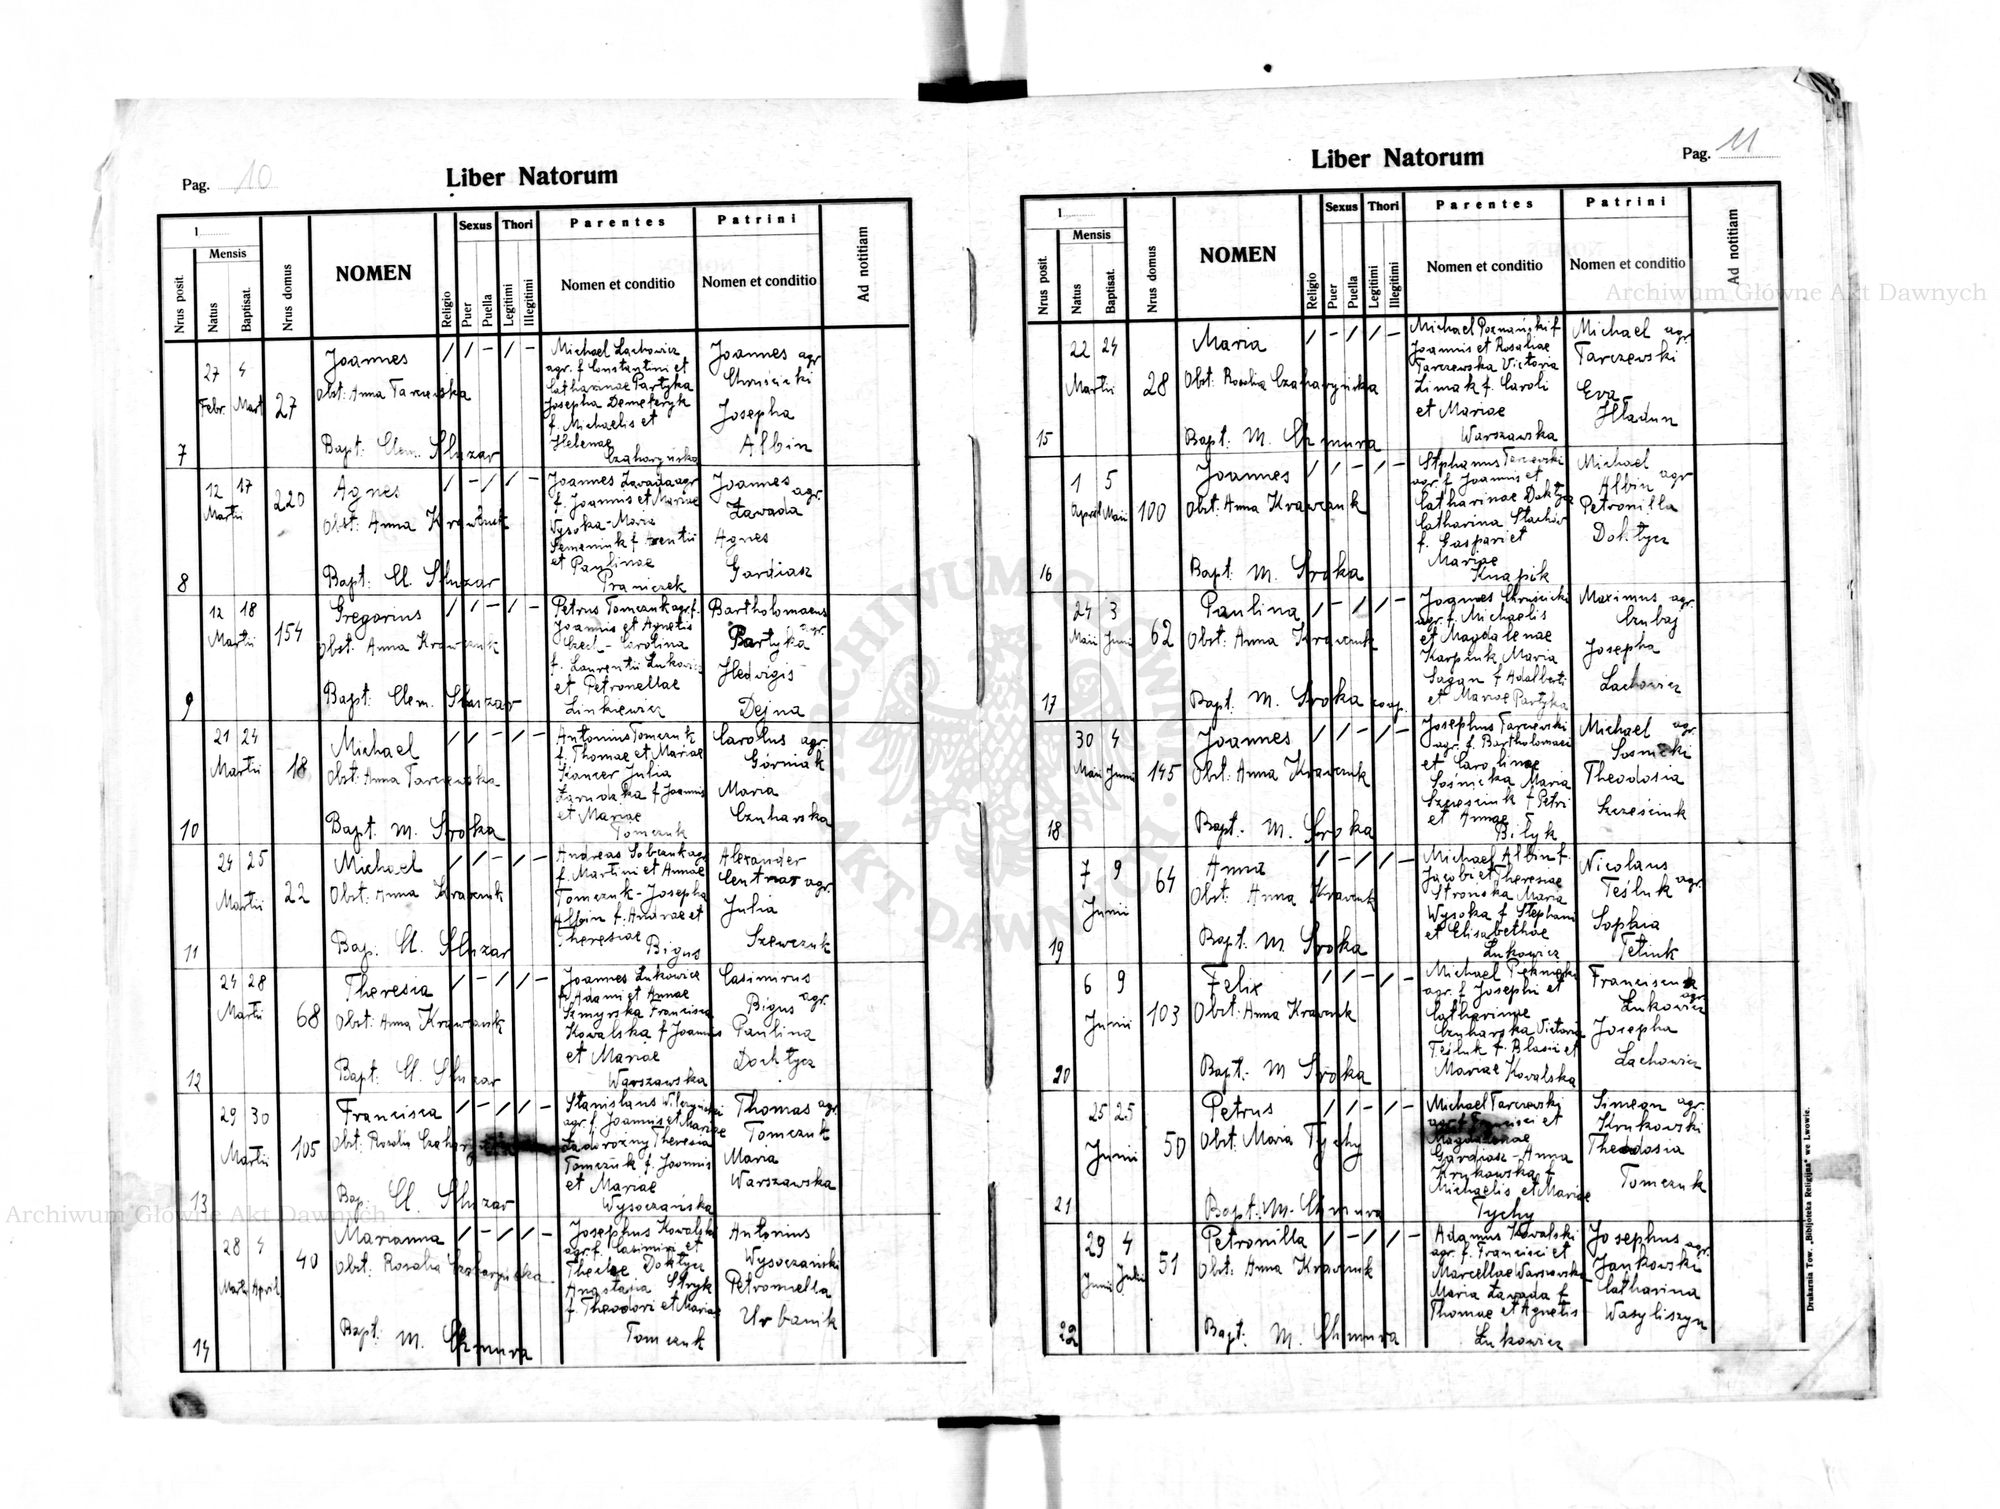 Pag. 10
Liber Natorum
1
Mensis
Nrus posit.
Natus
Baptisat.
Nrus domus
NOMEN
Religio
Sexus
Puer
Puella
Thori
Legitimi
Illegitimi
Parentes
Nomen et conditio
Patrini
Nomen et conditio
Ad notitiam
7
27 4
Febr. Mart
27
Joannes
Obst: Anna Tarczewska
Bapt. Clem. Sluzar
/ / - / -
Michael Lachowicz
agr. f Constantini et
Catharinae Partyka
Josepha Demkeryk
f. Michaelis et
Helenae
Czaharyńska
Joannes agr
Chruścicki
Josepha
Albin
8
12 17
Martii
220
Agnes
Obst: Anna Krawczuk
Bapt: Cl. Sluzar
/ - / / -
Joannes Zawada agr
f. Joannis et Mariae
Wysoka - Maria
Semeniuk f
et Paulinae
Praniczek
Joannes agr.
Zawada
Agnes
Gardiasz
9
12 18
Martii
154
Gregorius
Obst. Anna Krawczuk
Bapt: Clem. Sluzar
/ / - / -
Petrus Tomczuk agr. f.
Joannis et Agnetis
Czech - Carolina
f. Laurentii Lukowicz
et Petronellae
Linkiewicz
Bartholomaeus
agr.
Partyka
Hedvigis
Dejna
10
21 24
Martii
18
Michael
Obst: Anna Tarczewska
Bapt. M. Sroka
/ / - / -
Antonius Tomczuk
f. Thomae et Mariae
Kancer Julia
f Joannis
et Mariae
Tomczuk
Carolus agr.
Górniak
Maria
Czuharska
11
24 25
Martii
22
Michael
Obst: Anna Krawczuk
Bap. Cl. Sluzar
/ / - / -
Andreas Sobczuk agr
f. Martini et Annae
Tomczuk - Josepha
Albin f. Andrae et
Theresiae Bigus
Alexander
agr.
Julia
Szewczuk
12
24 28
Martii
68
Theresia
Obst: Anna Krawczuk
Bapt: Cl. Sluzar
/ - / / -
Joannes Lukowicz
f. Adami et Annae
Smyrska Francisca
Kowalska f Joannis
et Mariae
Warszawska
Casimirus
agr.
Bigus
Paulina
Dochtycz
13
29 30
Martii
105
Francisca
Obst: Rosalia
Bap. Cl. Sluzar
/ - / / -
Stanislaus Wilczyński
agr. f. Joannis et Mariae
Zadorożny Theresia
Tomczuk f. Joannis
et Mariae
Wysoczańska
Thomas agr.
Tomczuk
Maria
Warszawska
14
28 4
Martii April
40
Marianna
Obst. Rosalia Czaharyńska
Bapt. M. Chmura
/ - / / -
Josephus Kowalski
agr. f. Casimiri et
Theclae Doktycz
Anastasia Stryk
f. Theodori et Mariae
Tomczuk
Antonius
Wysoczański
Petronella
Urbanik
Pag. 11
Liber Natorum
1
Mensis
Nrus posit.
Natus
Baptisat.
Nrus domus
NOMEN
Religio
Sexus
Puer
Puella
Thori
Legitimi
Illegitimi
Parentes
Nomen et conditio
Patrini
Nomen et conditio
Ad notitiam
15
22 24
Martii
28
Maria
Obst: Rosalia Czaharyńska
Bapt. M. Chmura
/ - / / -
Michael Poznański f
Joannis et Rosaliae
Tarczewska Victoria
Zimak f. Caroli
et Mariae
Warszawska
Michael agr
Tarczewski
Eva
Hładun
16
1 5
April Maii
100
Joannes
Obst: Anna Krawczuk
Bapt. M. Sroka
/ / - / -
Stphanus Tarczewski
agr. f Joannis et
Catharinae Doktycz
Catharina Stachów
f. Gaspari et
Mariae
Knapik
Michael
Albin agr
Petronilla
Doktycz
17
24 3
Maii Junii
62
Paulina
Obst: Anna Krawczuk
Bapt. M. Sroka coop.
/ - / / -
Joannes Chruścicki
agr. f. Michaelis
et Magdalenae
Karpiuk Maria
Sagan f Adalberti
et Mariae Partyka
Maximus agr.
Czubaj
Josepha
Lachowicz
18
30 4
Maii Junii
145
Joannes
Obst: Anna Krawczuk
Bapt. M. Sroka
/ / - / -
Josephus Tarczewski
agr. f. Bartholomaei
et Carolinae
Sośnicka Maria
Szześciuk f Petri
et Annae
Biłyk
Michael agr.
Sosnicki
Theodosia
Szcześciuk
19
7 9
Junii
64
Anna
Obst: Anna Krawczuk
Bapt. M. Sroka
/ - / / -
Michael Albin f.
Jacobi et Theresiae
Strońska Maria
Wysoka f Stephani
et Elisabethae
Lukowicz
Nicolaus
agr.
Teśluk
Sophia
Teśluk
20
6 9
Junii
103
Felix
Obst: Anna Krawczuk
Bapt. M Sroka
/ / - / -
Michael
agr. f Josephi et
Catharinae
Czuharska Victoria
Teśluk f. Blasii et
Mariae Kowalska
agr
Lukowicz
Josepha
Lachowicz
21
25 25
Junii
50
Petrus
Obst: Maria Tychy
Bapt: M. Chmura
/ / - / -
Michael Tarczewski
agr. f Francisci et
Magdalenae
Gardiasz - Anna
Krukowska f
Michaelis et Mariae
Tychy
Simeon agr.
Krukowski
Theodosia
Tomczuk
22
29 4
Junii Julii
51
Petronilla
Obst: Anna Krawczuk
Bapt. M. Chmura
/ - / / -
Adamus Kowalski
agr. f. Francisci et
Marcellae Warszawska
Maria Zawada f
Thomae et Agnetis
Lukowicz
Josephus agr.
Jankowski
Catharina
Wasyliszyn
Drukarnia Tow. „Bibljoteka Religijna” we Lwowie.
Archiwum Główne Akt Dawnych
Archiwum Główne Akt Dawnych
ARCHIWUM GŁÓWNE AKT DAWNYCH